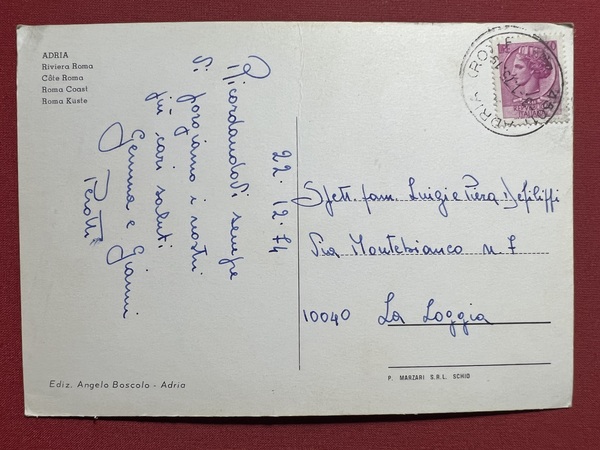 ADRIA
Riviera Roma
Côte Roma
Roma Coast
Roma Küste
22.12.74
Ricordandovi sempre
Vi porgiamo i nostri
più cari saluti
Gemma e Gianni
Perotti
Spett. fam. Luigi e Piera Defilippi
Via Montebianco n. 7
10040 La Loggia
Ediz. Angelo Boscolo - Adria
P. MARZARI S.R.L. SCHIO
ADRIA (RO)